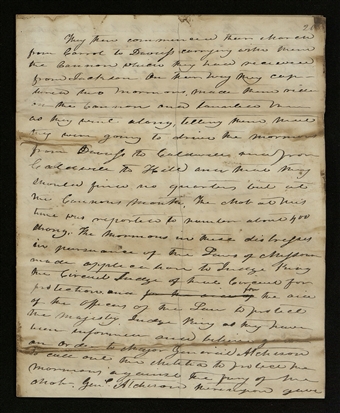 They then commenced their March
from Carrol to Daviess carrying with them
the Cannon which they had received
from Jackson. On their way they cap
tured two Mormons, made them ride
on the Cannon and taunted
as they went along, telling them that
they were going to drive the mormons
from Daviess to Caldwell and from
Caldwell to Hell and that they
should find no quarters but at
the Cannons mouth. The Mob at this
time was reported to number about 400
strong. The Mormons in these distresses
in pursuance of the Laws of Missouri
made application to Judge King
the Circuit Judge of that Circuit for
protection and for the aid
of the officers of the Law to protect
them. Judge King as they have
been informed and believe
an order to Major General Atcheson
to call out the Militia to protect the
mormons against the fury of the
Mob, Genl Atcheson thereupon gave